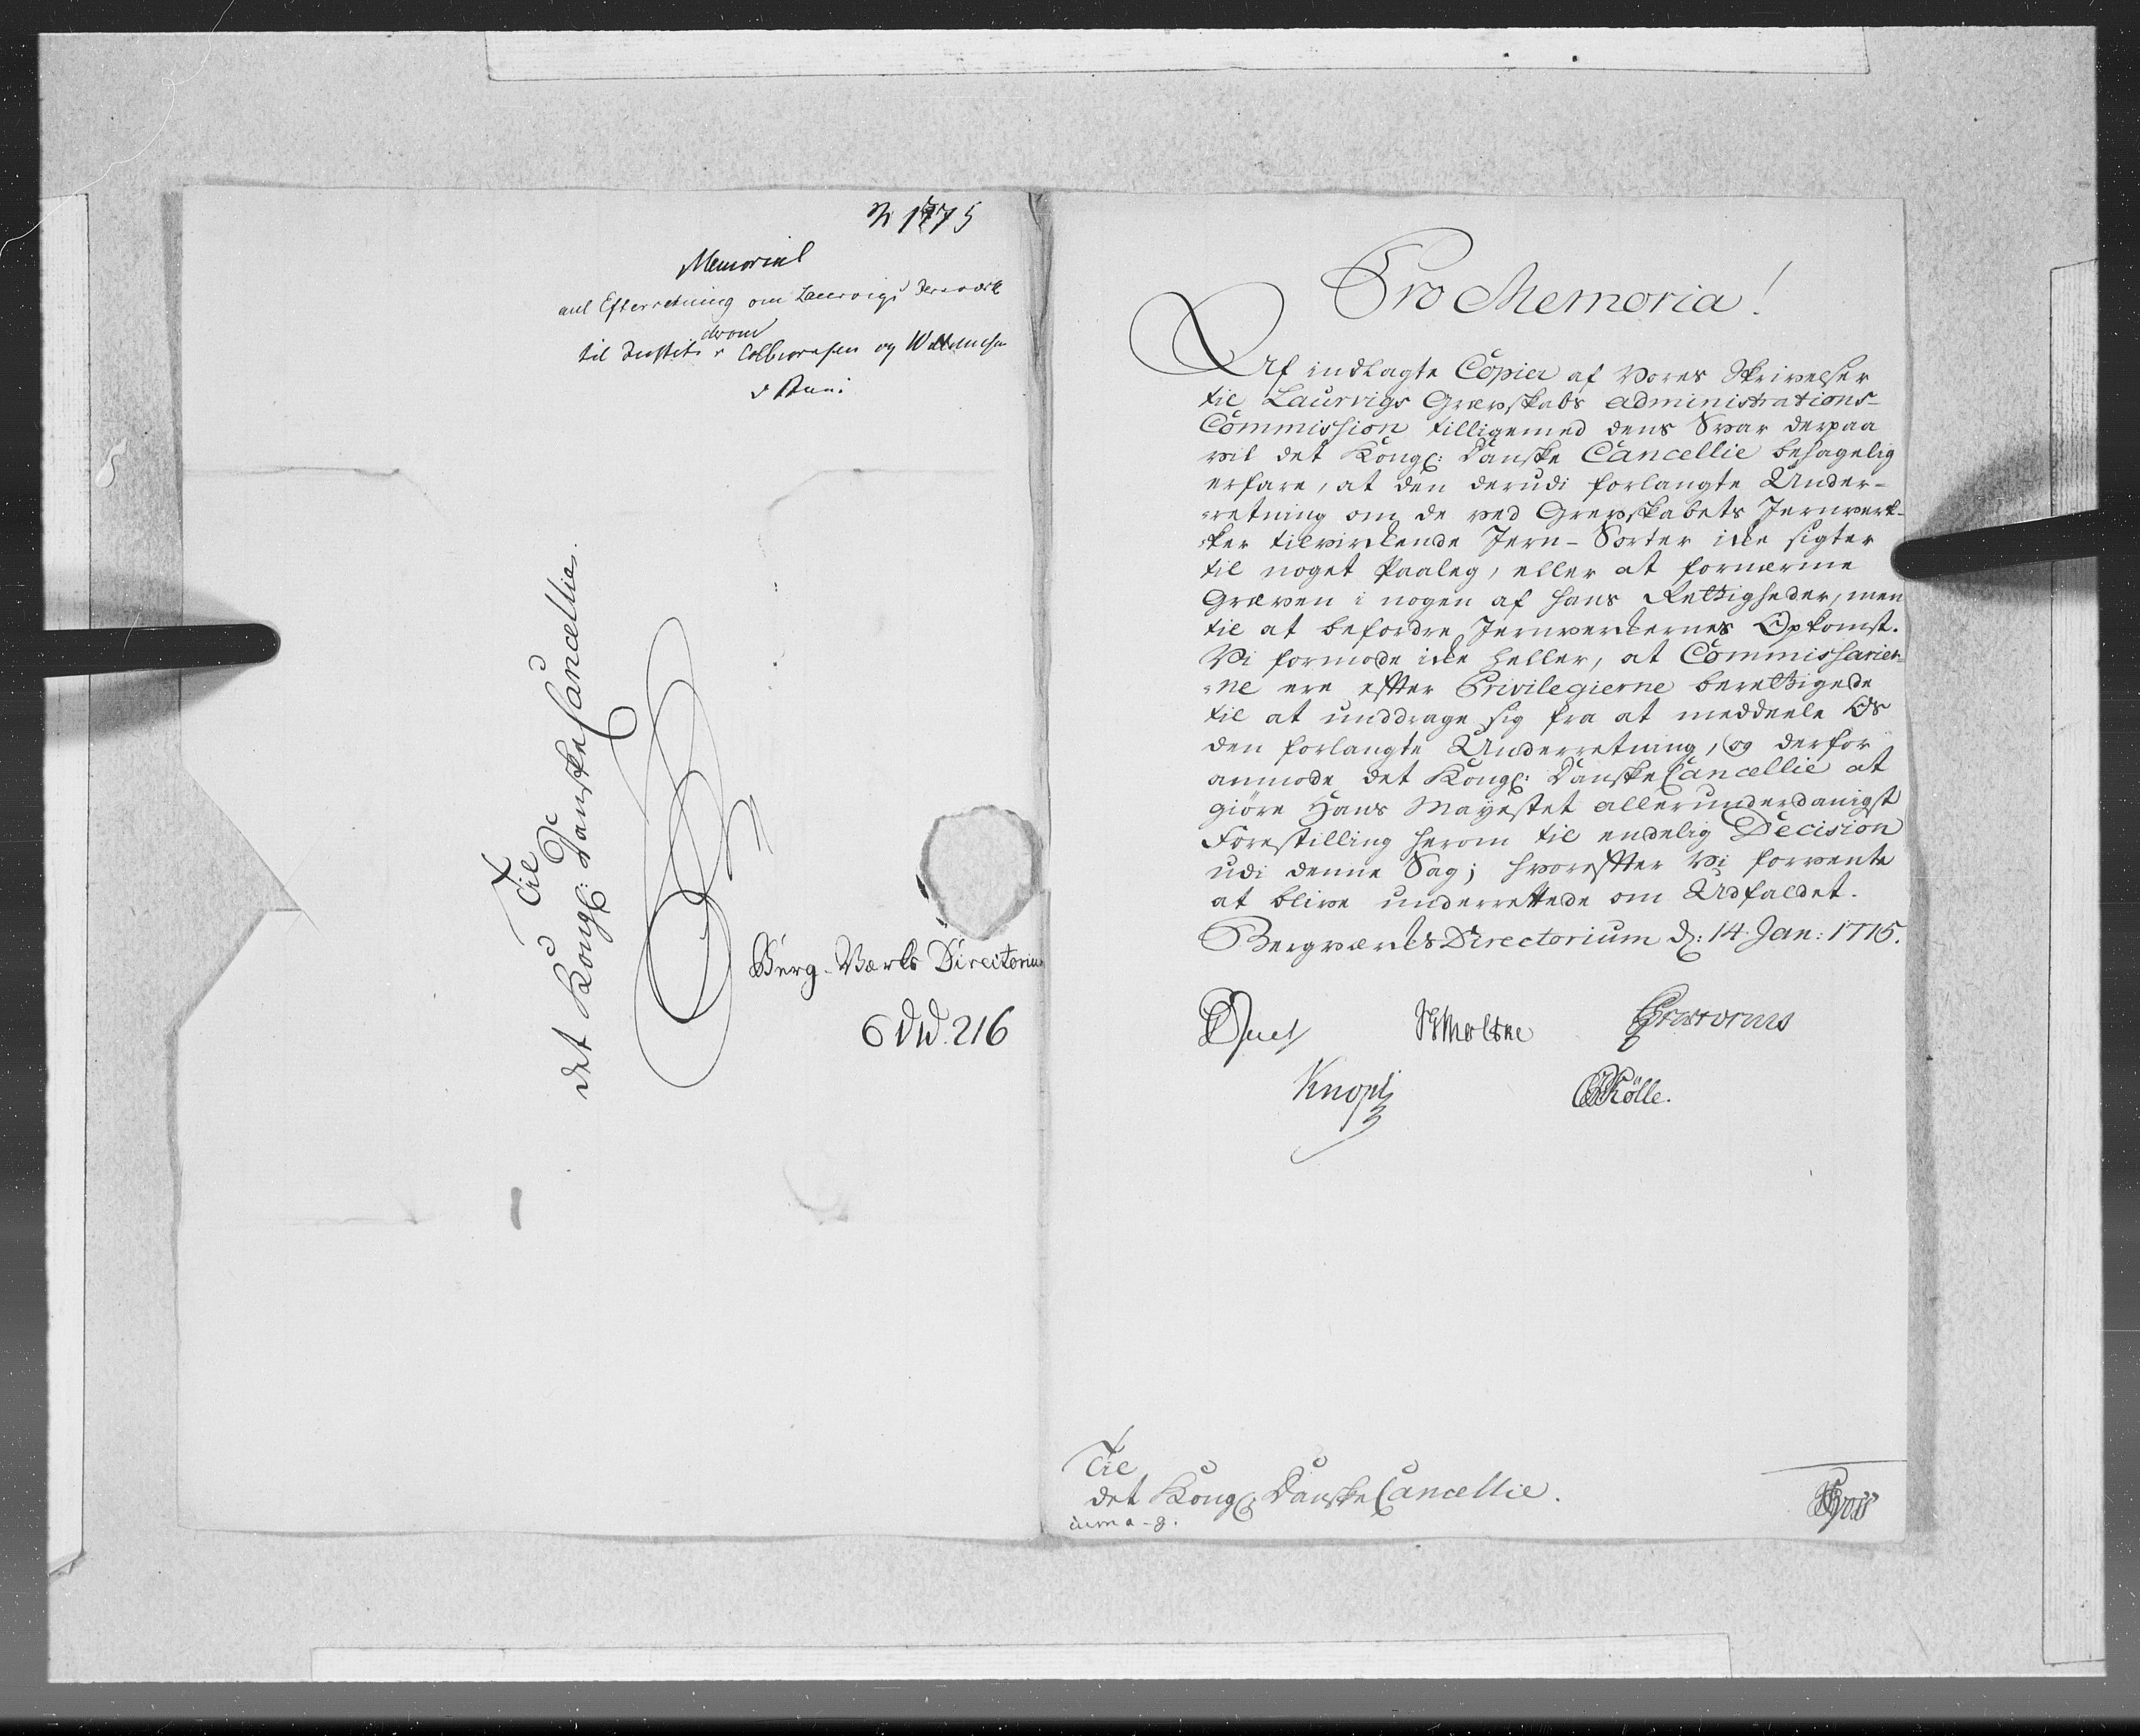 1775
Memorial
anl Efterretning om Laurvigs Jernværk
derom
til Justits r Colbiørnsen og Willemsen
Til
det Kongl: Danske Cancellie.
Berg-Værks Directorium
6 Dld. 216
Pro Memoria!
Af indlagte Copier af Vores Skrivelser
til Laurvigs Grævskabs administrations-
Commission tilligemed dens Svar derpaa
vil det Kongl: Danske Cancellie behagelig
erfare, at den derudi forlangte Under-
-retning om de ved Grevskabets Jernverk-
-ker tilvirkende Jern-Sorter ikke sigter
til noget Paaleg, eller at fornærme
Græven i nogen af hans Rettigheder, men
til at befordre Jernverkernes Opkomst.
Vi formode ikke heller, at Commissarier-
-ne ere efter Privilegierne berettigede
til at unddrage sig fra at meddeele Os
den forlangte Underretning, og derfor
anmode det Kongl: Danske Cancellie at
giøre Hans Mayestet allerunderdanigst
Forestilling herom til endelig Decision
udi denne Sag; hvorefter Vi forvente
at blive underrettede om Udfaldet.
Bergværks Directorium d: 14 Jan: 1775.
Juel Moltke
Knopf Kølle.
Til
det Kongl: Danske Cancellie.